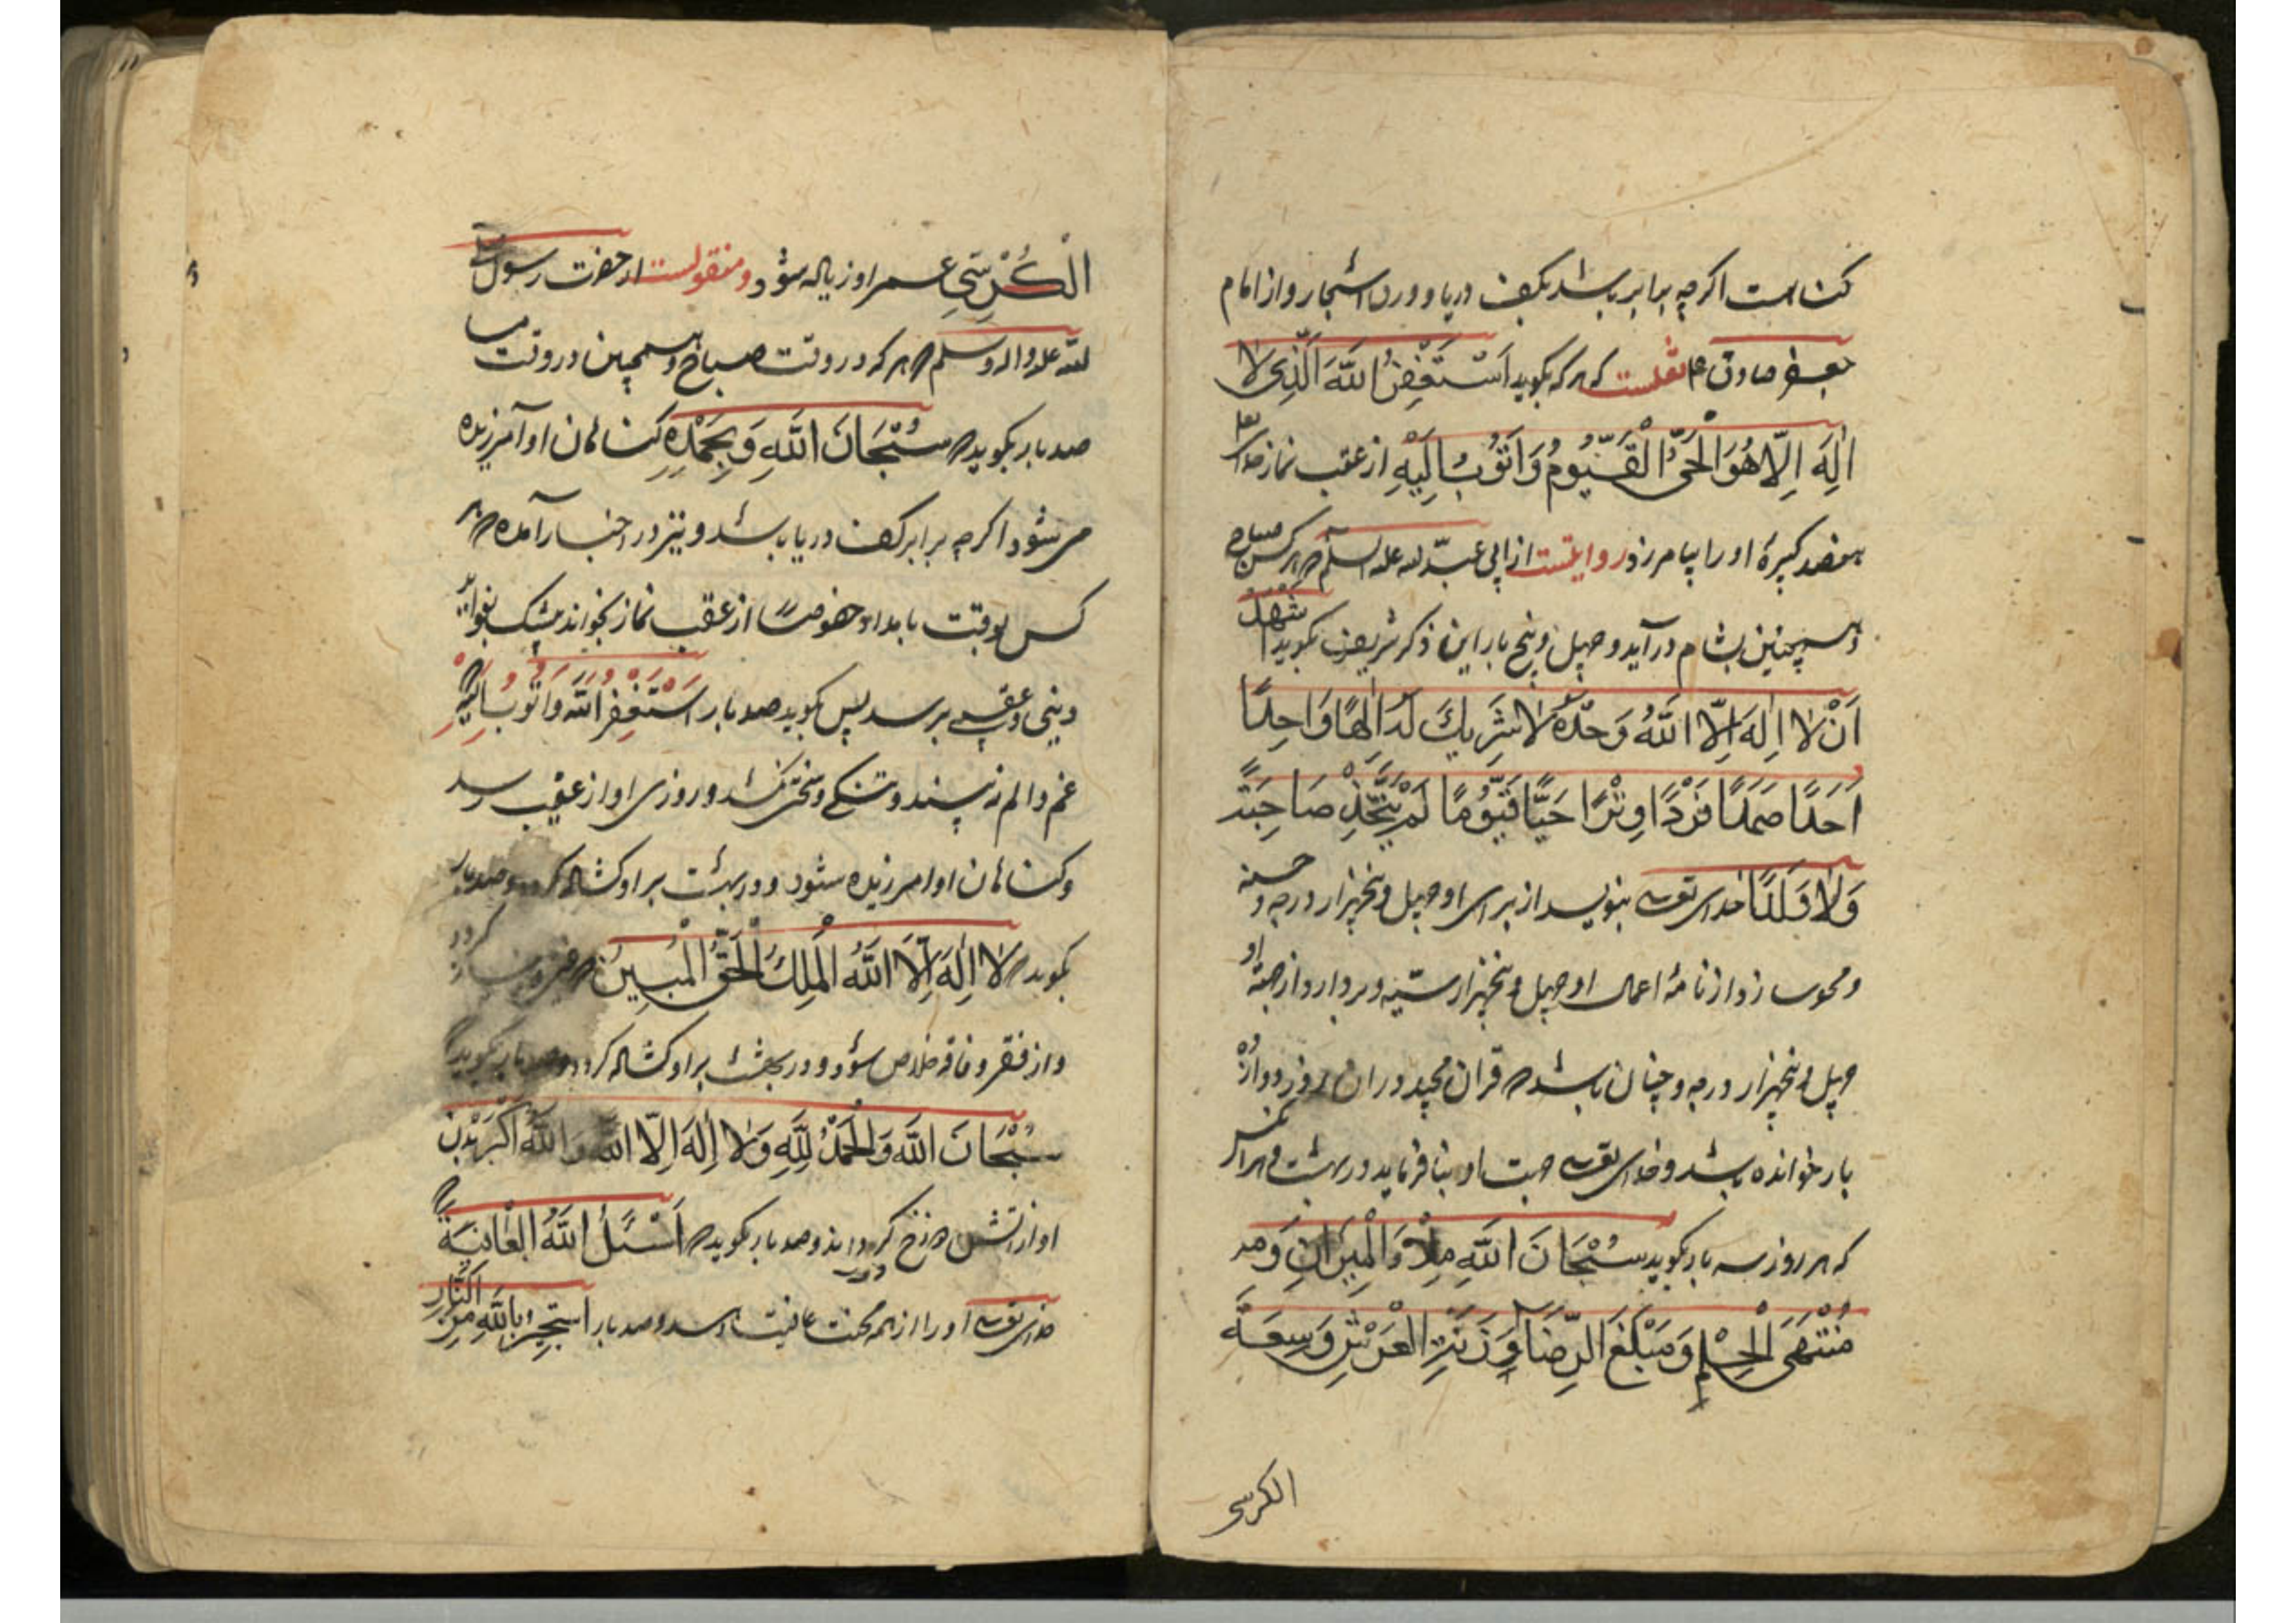 کناهست اکرچه برابر باشد بکف دریا و ورق اشجار و از امام
جعفر صادق ع نقلست که هر که بکوید اَسْتَغْفِرُ اللّهَ الَّذِی لا
اِلهَ اِلّا هُوَ الْحَیُّ الْقَیُّومُ وَاَتُوبُ اِلَیْهِ از عقب نماز
هفصد کبیرهٔ او را بیامرزد روایتست از ابی عبد الله علیه السلم هر کس صباح
و همچنین بشام درآید و چهل و پنج بار این ذکر شریف بکوید اشْهَدُ
اَنْ لا اِلهَ اِلّا اللّهُ وَحْدَهُ لا شَرِیكَ لَهُ اِلهًا وَاحِدًا
اَحَدًا صَمَدًا فَرْدًا وِتْرًا حَیًّا قَیُّومًا لَمْ یَتَّخِذْ صَاحِبَتً
وَلا وَلَدًا خدای تعالی بنویسد از برای او چهل و پنجهزار درجه و حسنه
و محو سازد از نامهٔ اعمال او چهل و پنجهزار سیّئه و بردارد از جهة او
چهل و پنجهزار درجه و چنان باشد قرآن مجید در ان روز دوازده
بار خوانده باشد و خدای تعالی جهت او بنا فرماید در بهشت و هر کس
که هر روز سه بار بکوید سُبْحَانَ اللّهِ مِلأَ الْمِیزَانِ وَ
مُنْتَهَی الْحِلْمِ وَمَبْلَغَ الرِّضَا وَزِنَةَ الْعَرْشِ وَسِعَةَ
الکرسی
الْکُرْسِیِّ عمر او زیاده شود و منقولست از حضرت رسول صلی
الله علیه واله وسلم هر که در وقت صباح و همچنین در وقت مسا
صد بار بکوید سُبْحَانَ اللّهِ وَبِحَمْدِهِ کناهان او آمرزیده
می شود اکرچه برابر کف دریا باشد و نیز در اخبار آمده هر
کس بوقت بامداد خصوصًا از عقب نماز بخواند بیشک بثواب
دینی و عقبی برسد پس بکوید صد بار اَسْتَغْفِرُ اللّهَ وَاَتُوبُ اِلَیْهِ
غم و الم نه بیند و تنکی و سختی نکشد و روزی او از غیب رسد
و کناهان او امرزیده شود و در بهشت بر او کشاده کردد و صد بار
بکوید لا اِلهَ اِلَّا اللّهُ الْمَلِكُ الْحَقُّ الْمُبِینُ کردد
و از فقر و فاقه خلاص شود و در بهشت بر او کشاده کردد و صد بار بکوید
سُبْحَانَ اللّهِ وَالْحَمْدُ لِلّهِ وَلا اِلهَ اِلّا اللّهُ وَاللّهُ اَکْبَرُ بدن
او از اتش دوزخ کرداند و صد بار بکوید اَسْئَلُ اللّهَ الْعَافِیَةَ
خدای تعالی او را از همه محنت عافیت دهد و صد بار اَسْتَجِیرُ بِاللّهِ مِنَ النَّارِ